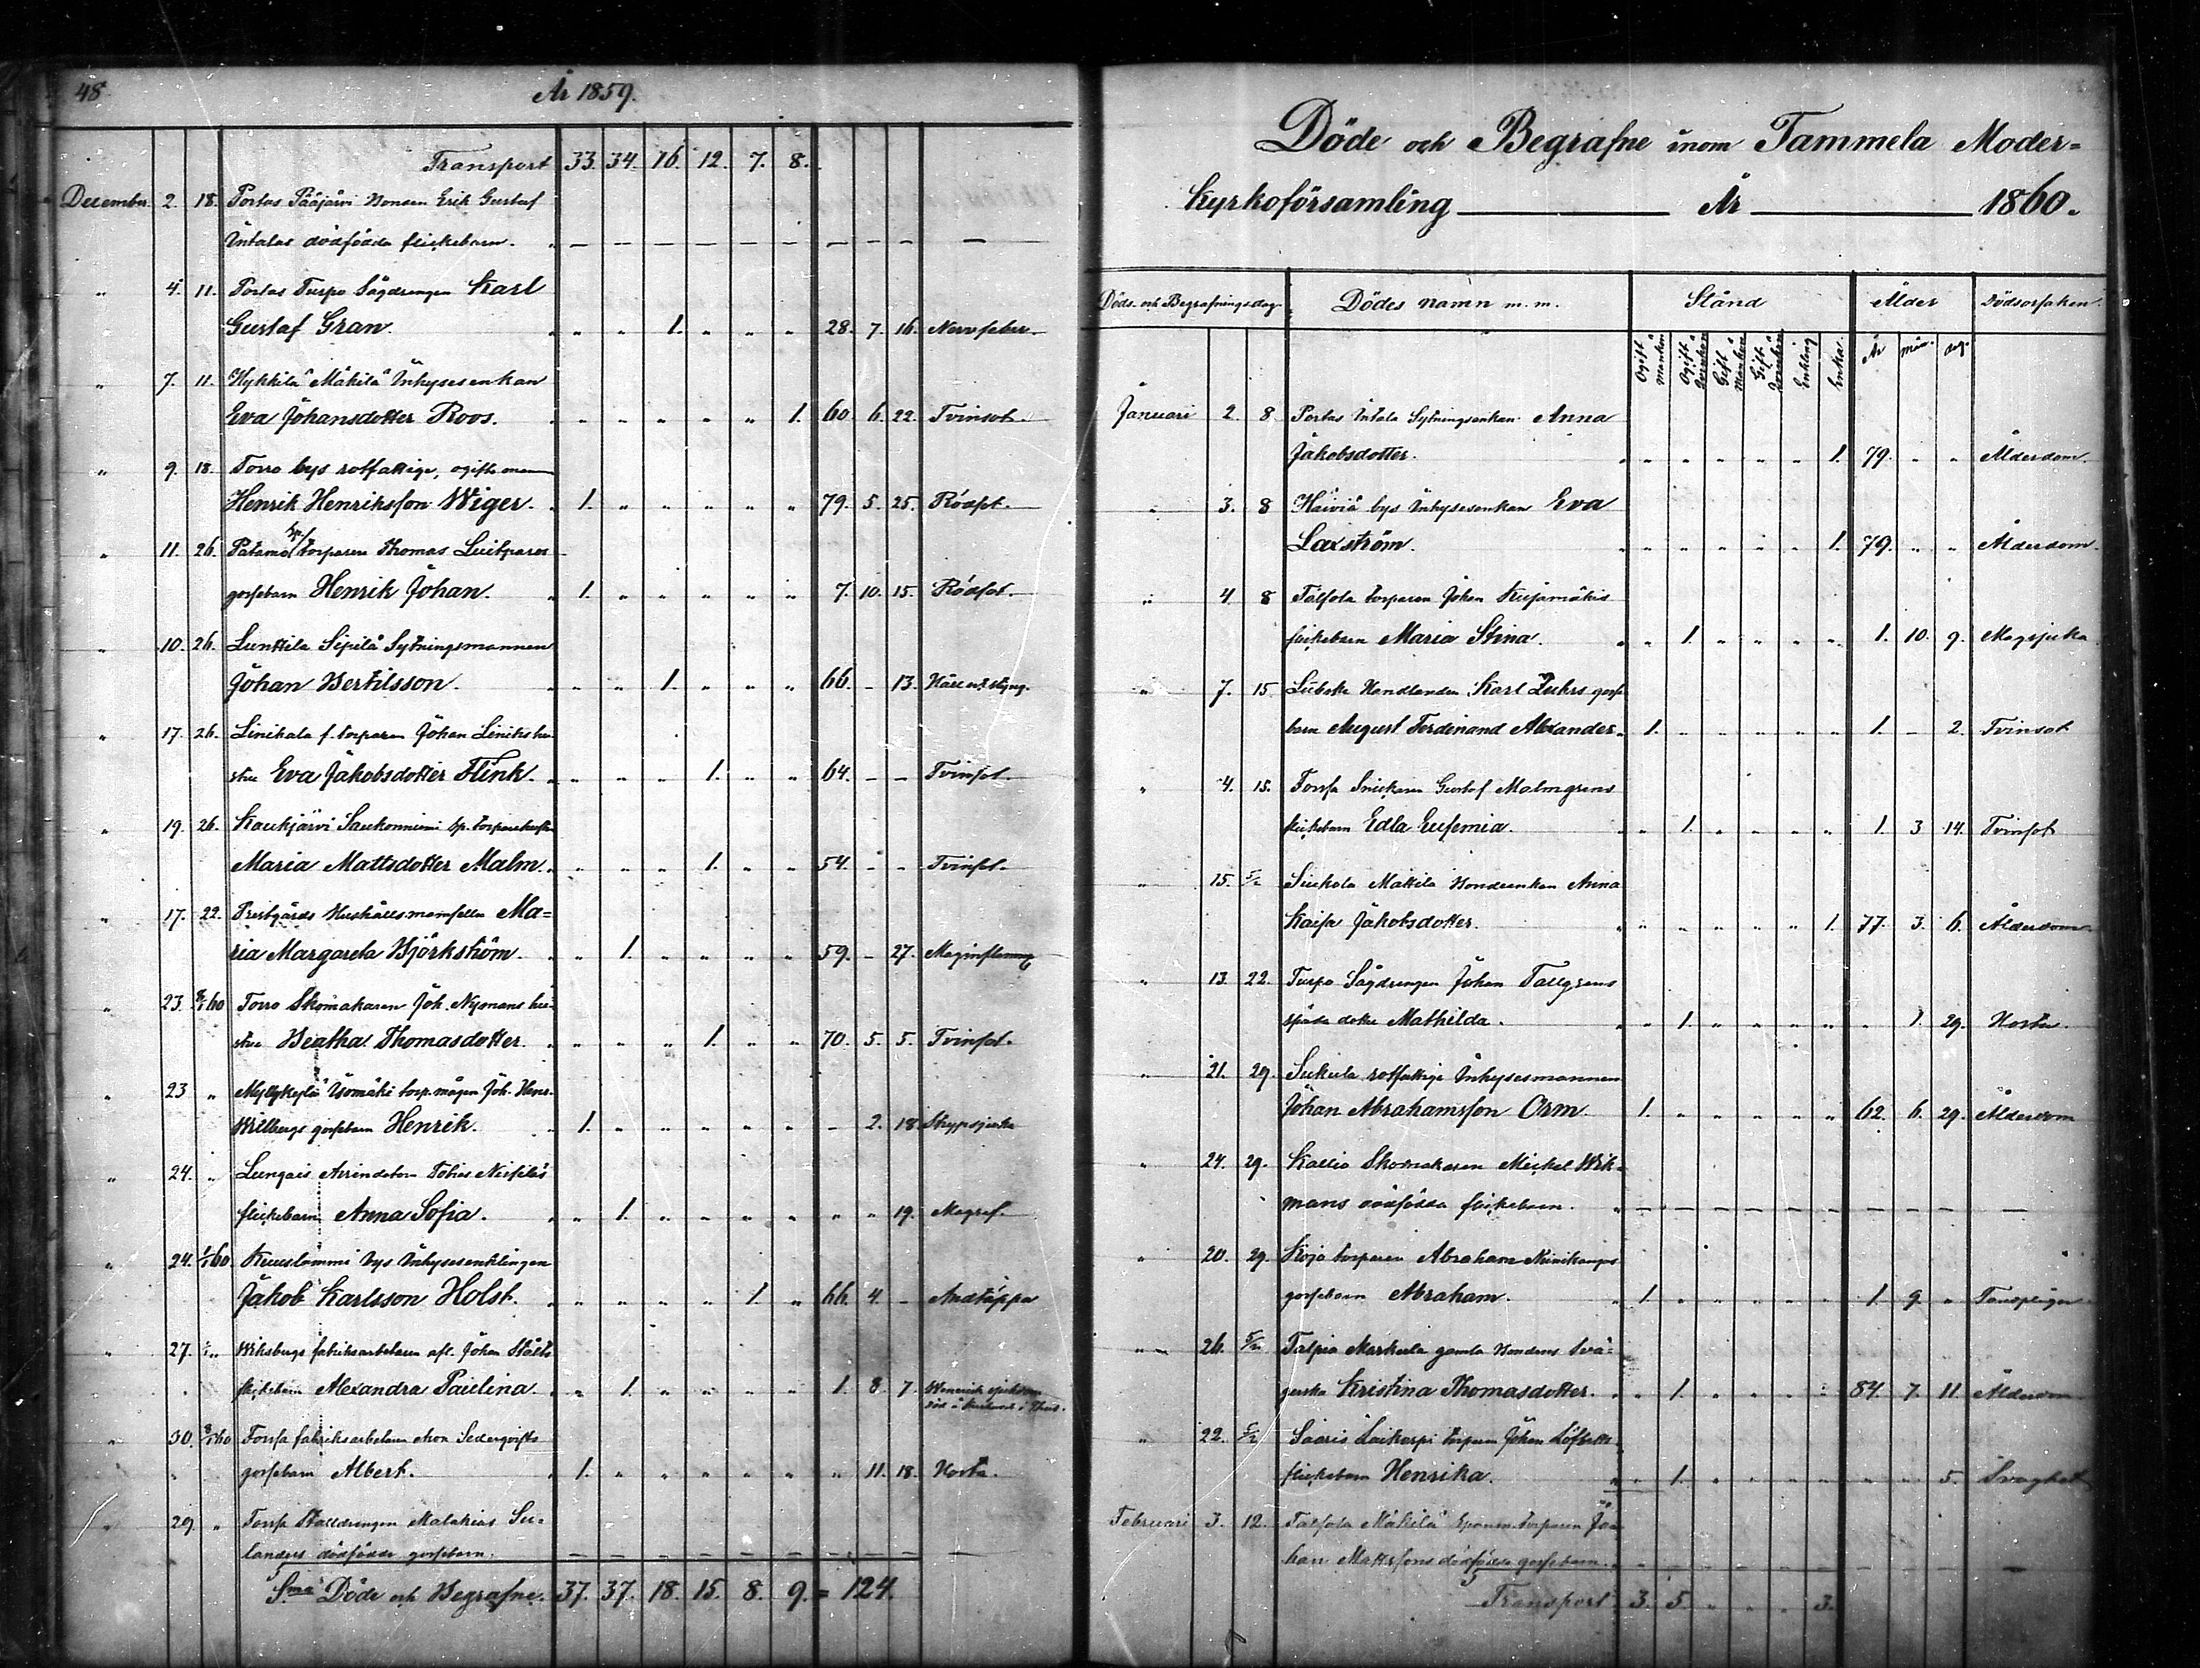 48
År 1859.
Transport 33. 34. 16. 12. 7. 8.
December. 2. 18. Portas Pääjärvi Bonden Erik Gustaf
Intalas dödfödda flickebarn. — — — — — — — — — —
" 4. 11. Portas Turpo Sågdrengen Karl
Gustaf Gran. " " " 1. " " " 28. 7. 16. Nervfeber.
" 7. 11. Hykkilä Mäkilä Inhysesenkan
Eva Johansdotter Roos. " " " " " " 1. 60. 6. 22. Tvinsot.
" 9. 18. Torro bys rotfattige, ogifte man
Henrik Henriksson Wiger. " 1. " " " " " 79. 5. 25. Rödsot.
" 11. 26. Patamo sp. torparen Thomas
gossebarn Henrik Johan. " 1. " " " " " 7. 10. 15. Rödsot.
" 10. 26. Lunkkila Sipilä Sytningsmannen
Johan Bertilsson. " " " 1. " " " 66. – 13. Håll och styng.
" 17. 26. Linikala f. torparen Johan Liniks hu-
stru Eva Jakobsdotter Flink. " " " " 1. " " 64. – – Tvinsot.
" 19. 26. Kaukjärvi Saukonniemi sp. torparehustr.
Maria Mattsdotter Malm. " " " " 1. " " 54. – – Tvinsot.
" 17. 22. Prestgårds Hushålls mamsellen Ma=
ria Margareta Björkström. " " 1. " " " " 59. – 27. Maginflamm
" 23. 8/1 60 Torro Skomakaren Joh. Nymans hu-
stru Beatha Thomasdotter. " " " " 1. " " 70. 5. 5. Tvinsot.
" 23 " Myllykylä Isomäki torp. mågen Joh. Henr.
Willbergs gossebarn Henrik. " 1. " " " " " – 2. 18.
" 24. " Lungais Arrendatorn Tobias
flickebarn Anna Sofia. " " 1. " " " " " " 19. Magref.
" 24. 1/1 60 Kuuslammi bys Inhysesenklingen
Jakob Karlsson Holst. " " " " " 1. " 66. 4. – Andtäppa
" 27. 1/1 " Wiksbergs fabriksarbetaren afl. Johan Ståhls
flickebarn Alexandra Paulina. " " 1. " " " " 1. 8. 7.
" 30. 8/1 60 Forssa fabriksarbetaren
gossebarn Albert. " 1. " " " " " " 11. 18. Hosta.
" 29. " Forssa Stalldrengen Malakias Su=
landers dödfödda gossebarn. — — — — — — — — — —
S:ma Döde och Begrafne. 37. 37. 18. 15. 8. 9. = 124.
Döde och Begrafne inom Tammela Moder=
kyrkoförsamling År 1860.
Döds- och Begrafningsdag. Dödes namn m. m. Stånd Ålder Dödsorsaken.
Ogift Mankön Ogift Qvinkön Gift Mankön Gift Qvinkön Enkling Enka. År mån. dag.
Januari 2. 8. Portas Intala Sytningsenkan Anna
Jakobsdotter. " " " " " " 1. 79. " " Ålderdom.
" 3. 8 Häiviä bys Inhysesenkan Eva
Laxström. " " " " " " 1. 79. " " Ålderdom.
" 4 8 Talsola torparen Johan Kujamäkis
flickebarn Maria Stina. " " 1. " " " " 1. 10. 9. Magsjuka
" 7. 15 Lübska Handlanden Karl Luhrs gosse
barn August Ferdinand Alexander. 1. " " " " " 1. – 2. Tvinsot
" 4. 15. Forssa Snickaren Gustaf Malmgrens
flickebarn Edla Eufemia. " " 1. " " " " 1. 3 14. Tvinsot
" 15. 5/2 Sukula Mattila Bondeenkan Anna
Kaisa Jakobsdotter. " " " " " " 1. 77. 3. 6. Ålderdom.
" 13. 22. Turpo Sågdrengen Johan Tallgrens
späda dotter Mathilda. " " 1. " " " " " 1. 29. Hosta.
" 21. 29. Sukula rotfattige Inhysesmannen
Johan Abrahamsson Orm 1. " " " " " 62. 6. 29. Ålderdom
" 24. 29. Kallio Skomakaren Mickel Wik-
mans dödfödda flickebarn. — — — — — — — — — —
" 20. 29. Kojo torparen Abraham
gossebarn Abraham. " 1. " " " " " 1. 9. "
" 26. 5/2 Talpia Markula gamla Bondens Svä-
gerska Kristina Thomasdotter. " " 1. " " " " 84. 7. 11. Ålderdom
" 22. 5/2 Saaris torparen Johan
flickebarn Henrika. " " 1. " " " " " " 5. Svaghet
Februari 3. 12. Talsola Mäkilä torparen Jo-
han Mattssons dödfödda gossebarn. — — — — — — — — — —
Transport. 3. 5. " " " 3.